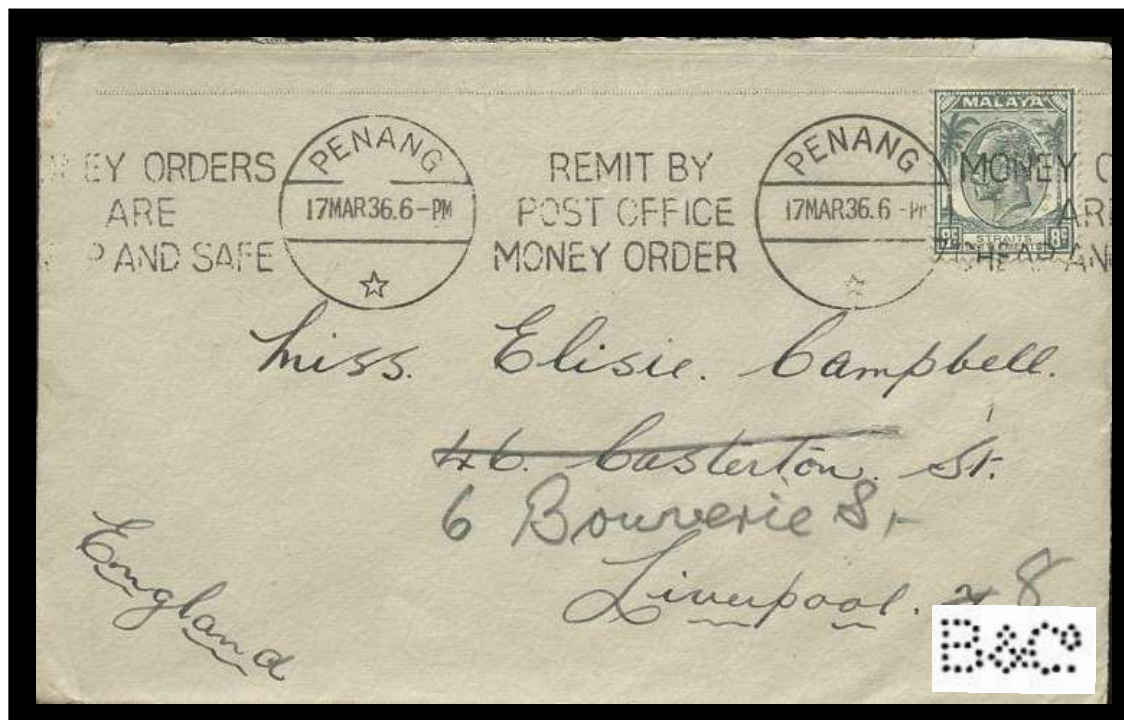 MALAYA
EY ORDERS
ARE
P AND SAFE
PENANG
17MAR36.6-PM
REMIT BY
POST OFFICE
MONEY ORDER
PENANG
17MAR36.6-PM
MONEY O
AR
CHEAP AN
8c STRAITS 8c
Miss. Elisie. Campbell.
46. Casterton. St.
6 Bouverie St
Liverpool. 8
England
B&Co